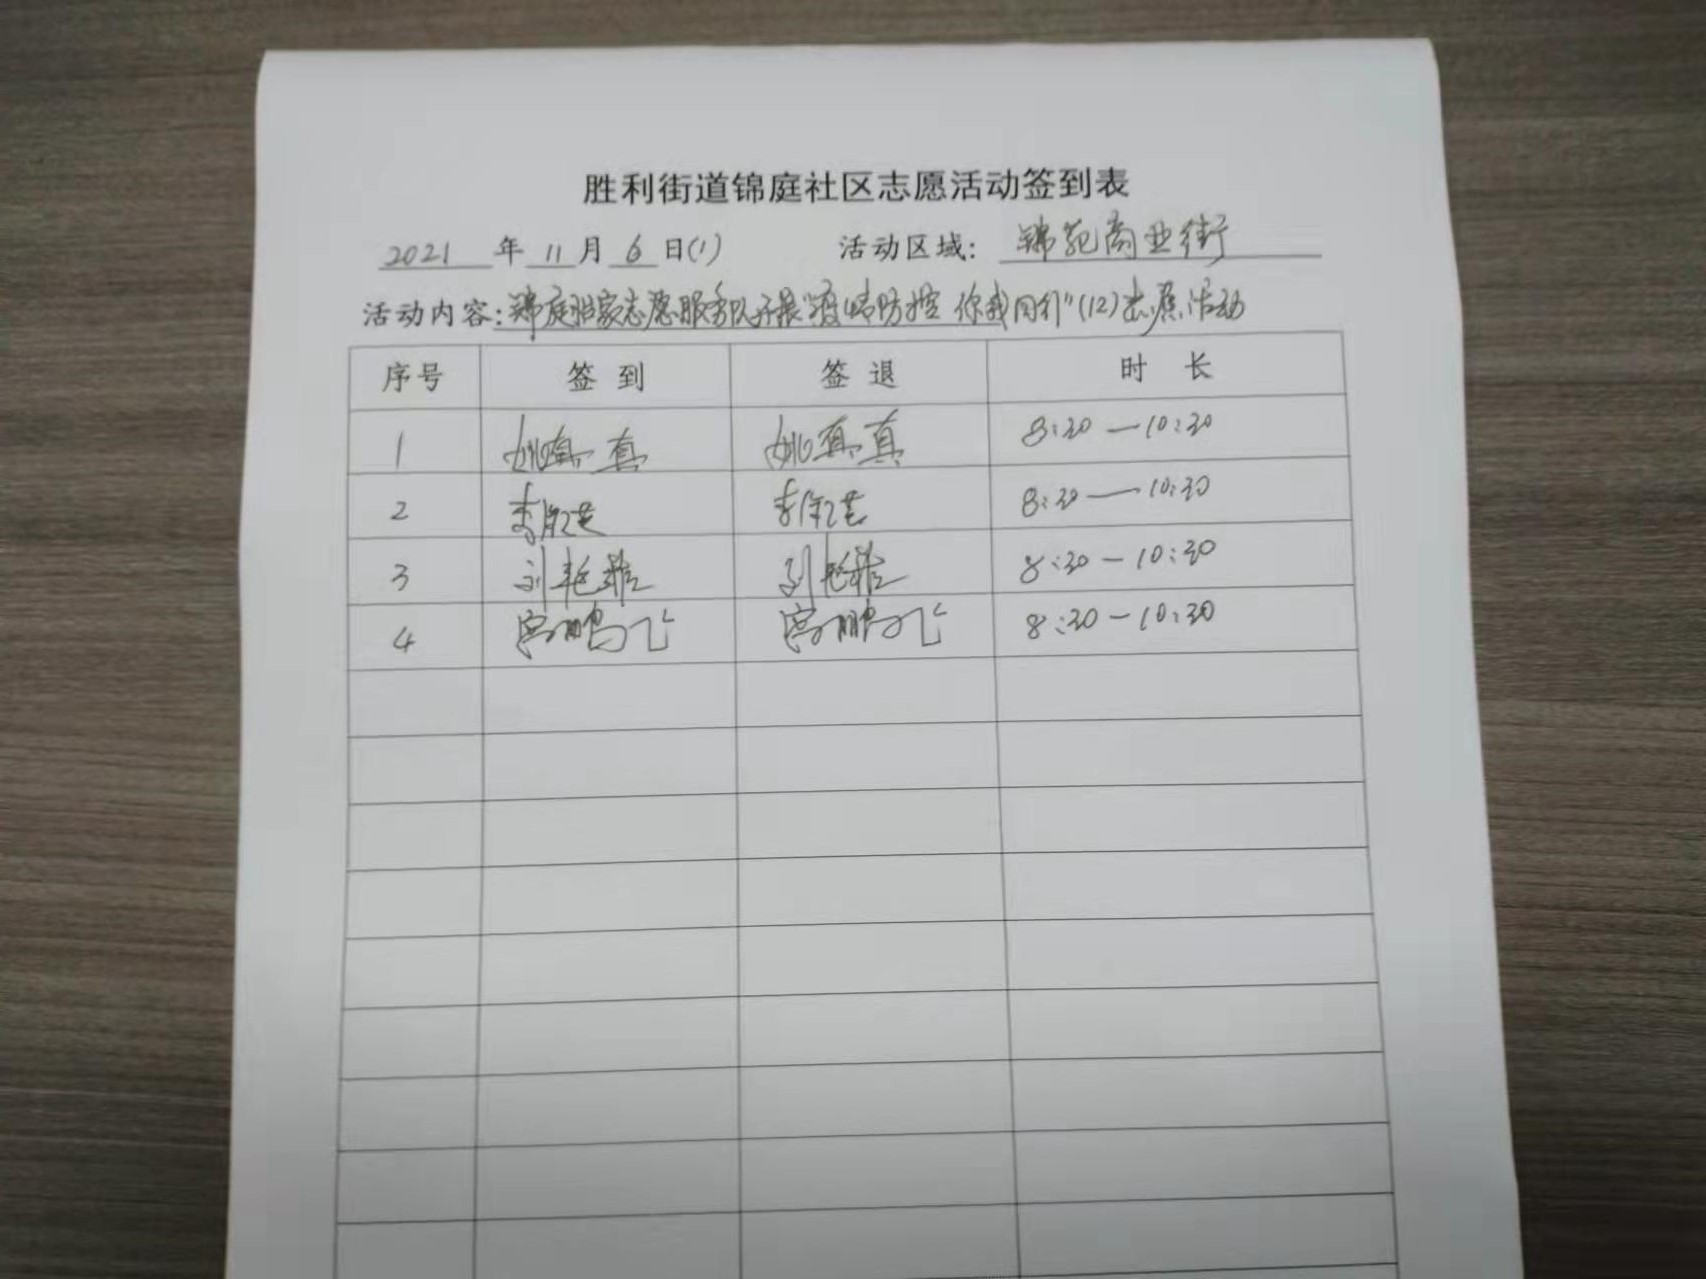 胜利街道锦庭社区志愿活动签到表
2021 年 11 月 6 日(1) 活动区域: 锦苑商业街
活动内容: 锦庭 家志愿服务队开展"疫情防控 你我同行"(12)志愿活动
序号 签 到 签 退 时 长
1 姚真真 姚真真 8:30 — 10:30
2 李 8:30 — 10:30
3 刘艳 刘艳 8:30 — 10:30
4 宫鹏飞 宫鹏飞 8:30 — 10:30